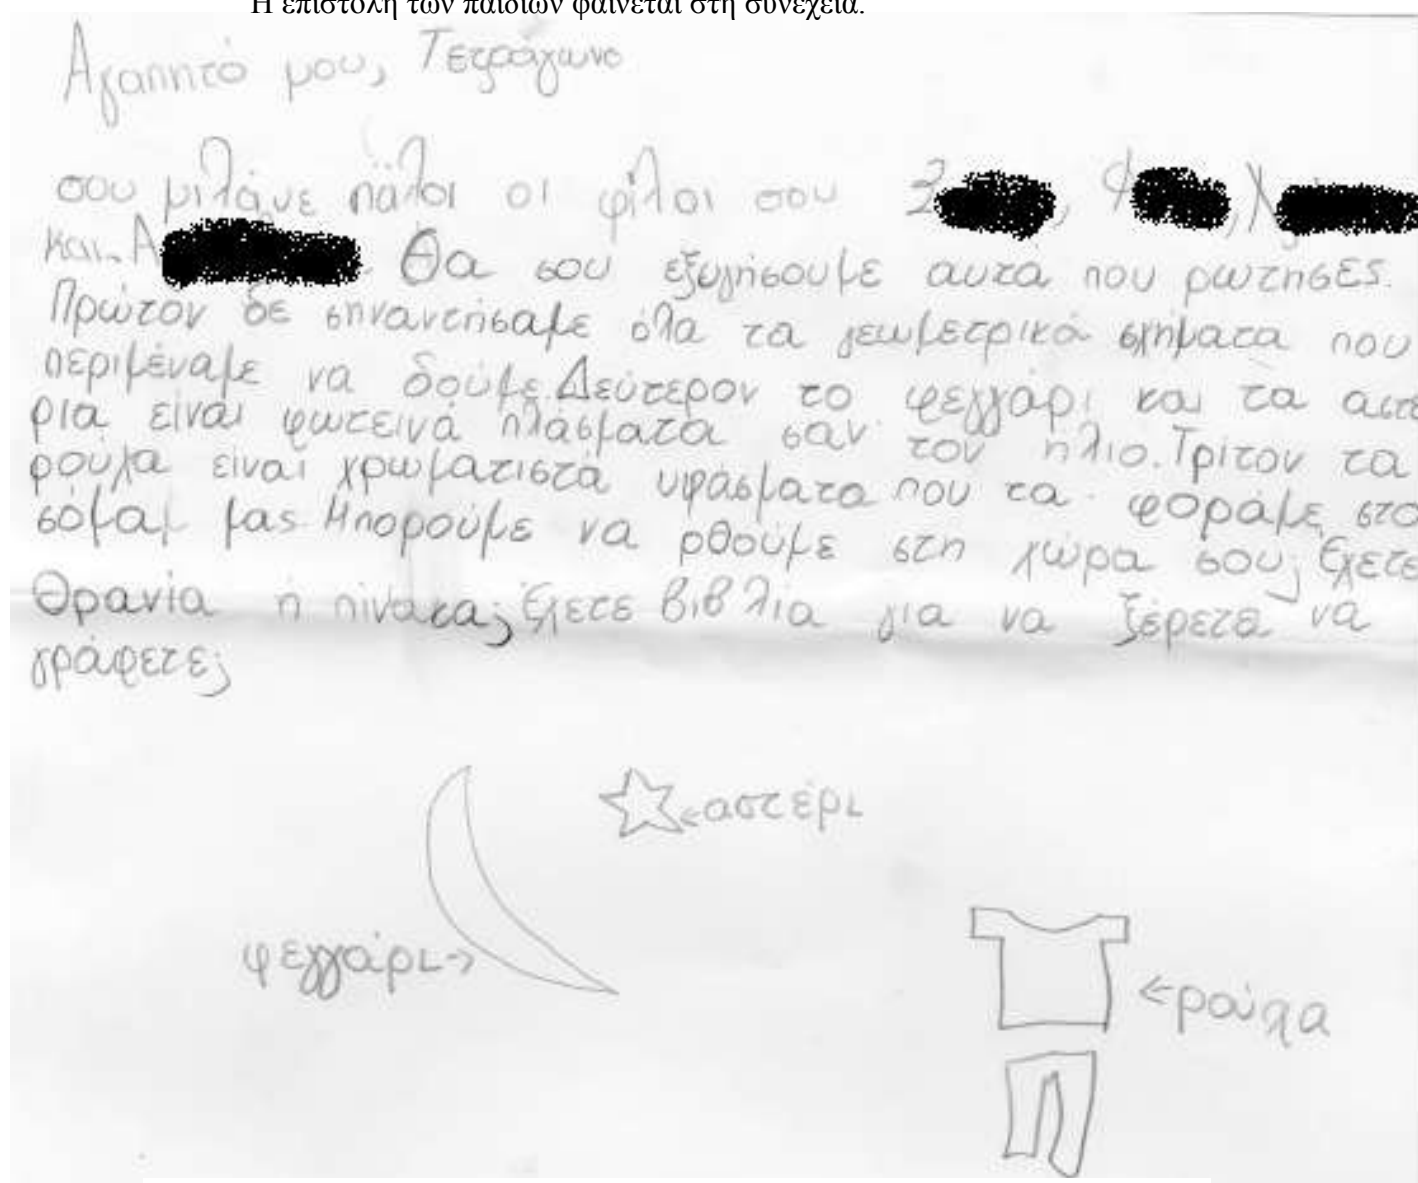 Η επιστολή των παιδιών φαίνεται στη συνέχεια.
Αγαπητό μου, Τετράγωνο
σου μιλάμε πάλοι οι φίλοι σου
και Α Θα σου εξυγήσουμε αυτα που ρωτησες.
Πρώτον δε σηναντήσαμε όλα τα γεωμετρικά σχήματα που
περιμέναμε να δούμε. Δεύτερον το φεγγάρι και τα αστέ
ρια είναι φωτεινά πλάσματα σαν τον ήλιο. Τρίτον τα
ρούχα ειναι χρωματιστά υφάσματα που τα φοράμε στο
σόμα μας. Μπορούμε να ρθούμε στη χώρα σου; Έχετε
Θρανία ή πίνακα; Έχετε βιβλία για να ξέρετε να
γράφετε;
αστέρι
φεγγάρι
ρούχα